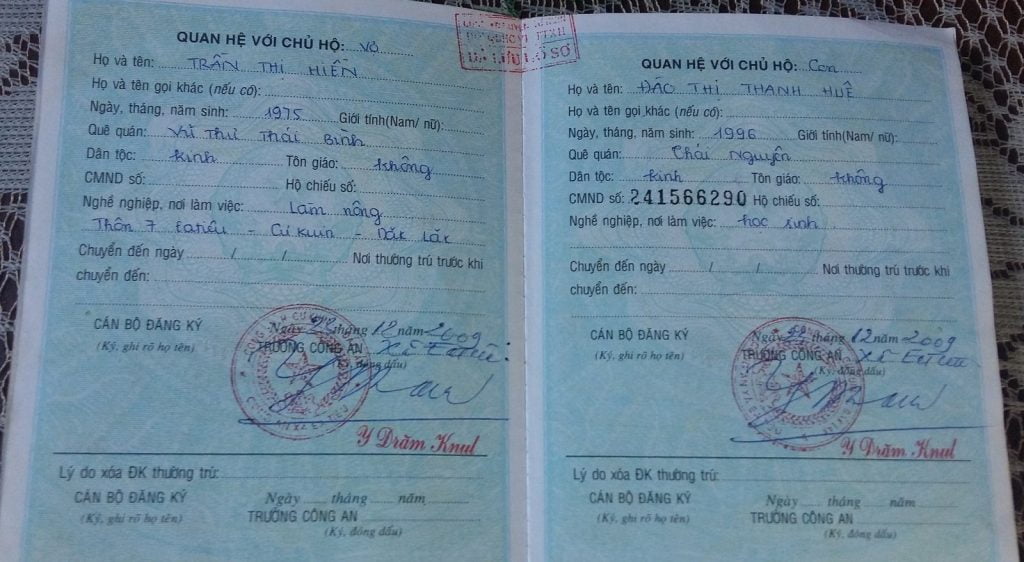 QUAN HỆ VỚI CHỦ HỘ: Vợ
Họ và tên: TRẦN THỊ HIỀN
Họ và tên gọi khác (nếu có):
Ngày, tháng, năm sinh: 1975 Giới tính(Nam/ nữ):
Quê quán: Vũ Thư Thái Bình
Dân tộc: kinh Tôn giáo: không
CMND số: Hộ chiếu số:
Nghề nghiệp, nơi làm việc: Làm nông
Thôn 7 Eatiêu - Cư kuin - Dăk Lăk
Chuyển đến ngày / / Nơi thường trú trước khi
chuyển đến:
CÁN BỘ ĐĂNG KÝ
(Ký, ghi rõ họ tên)
Ngày 22 tháng 12 năm 2009
TRƯỞNG CÔNG AN Xã Eatiêu
(Ký, đóng dấu)
Y Drăm Knul
Lý do xóa ĐK thường trú:
CÁN BỘ ĐĂNG KÝ
(Ký, ghi rõ họ tên)
Ngày tháng năm
TRƯỞNG CÔNG AN
(Ký, đóng dấu)
ĐÃ LƯU HỒ SƠ
QUAN HỆ VỚI CHỦ HỘ: Con
Họ và tên: ĐÀO THỊ THANH HUÊ
Họ và tên gọi khác (nếu có):
Ngày, tháng, năm sinh: 1996 Giới tính(Nam/ nữ):
Quê quán: Thái Nguyên
Dân tộc: kinh Tôn giáo: không
CMND số: 241566290 Hộ chiếu số:
Nghề nghiệp, nơi làm việc: học sinh
Chuyển đến ngày / / Nơi thường trú trước khi
chuyển đến:
CÁN BỘ ĐĂNG KÝ
(Ký, ghi rõ họ tên)
Ngày 22 tháng 12 năm 2009
TRƯỞNG CÔNG AN Xã Eatiêu
(Ký, đóng dấu)
Y Drăm Knul
Lý do xóa ĐK thường trú:
CÁN BỘ ĐĂNG KÝ
(Ký, ghi rõ họ tên)
Ngày tháng năm
TRƯỞNG CÔNG AN
(Ký, đóng dấu)